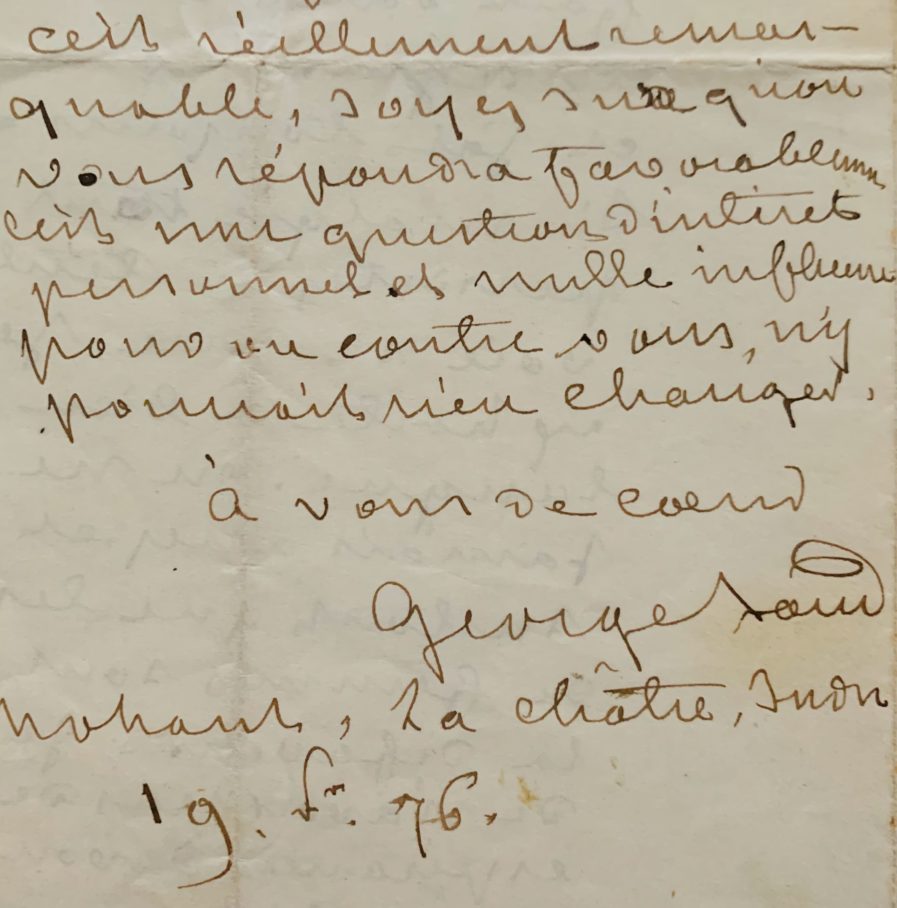 c'est réellement remar-
quable, soyez sûre qu'on
vous répondra favorablement
c'est une question d'intérêt
personnel et nulle influence
pour ou contre vous, n'y
pourrait rien changer.
à vous de coeur
George Sand
Nohant, La châtre, Indre
19. fr. 76.